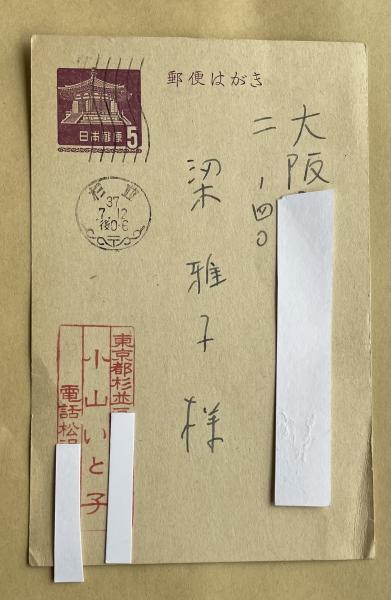 郵便はがき
日本郵便
5
杉並
37
7.12
後0-6
大阪
二ー四〇
梁雅子様
東京都杉並
小山いと子
電話松